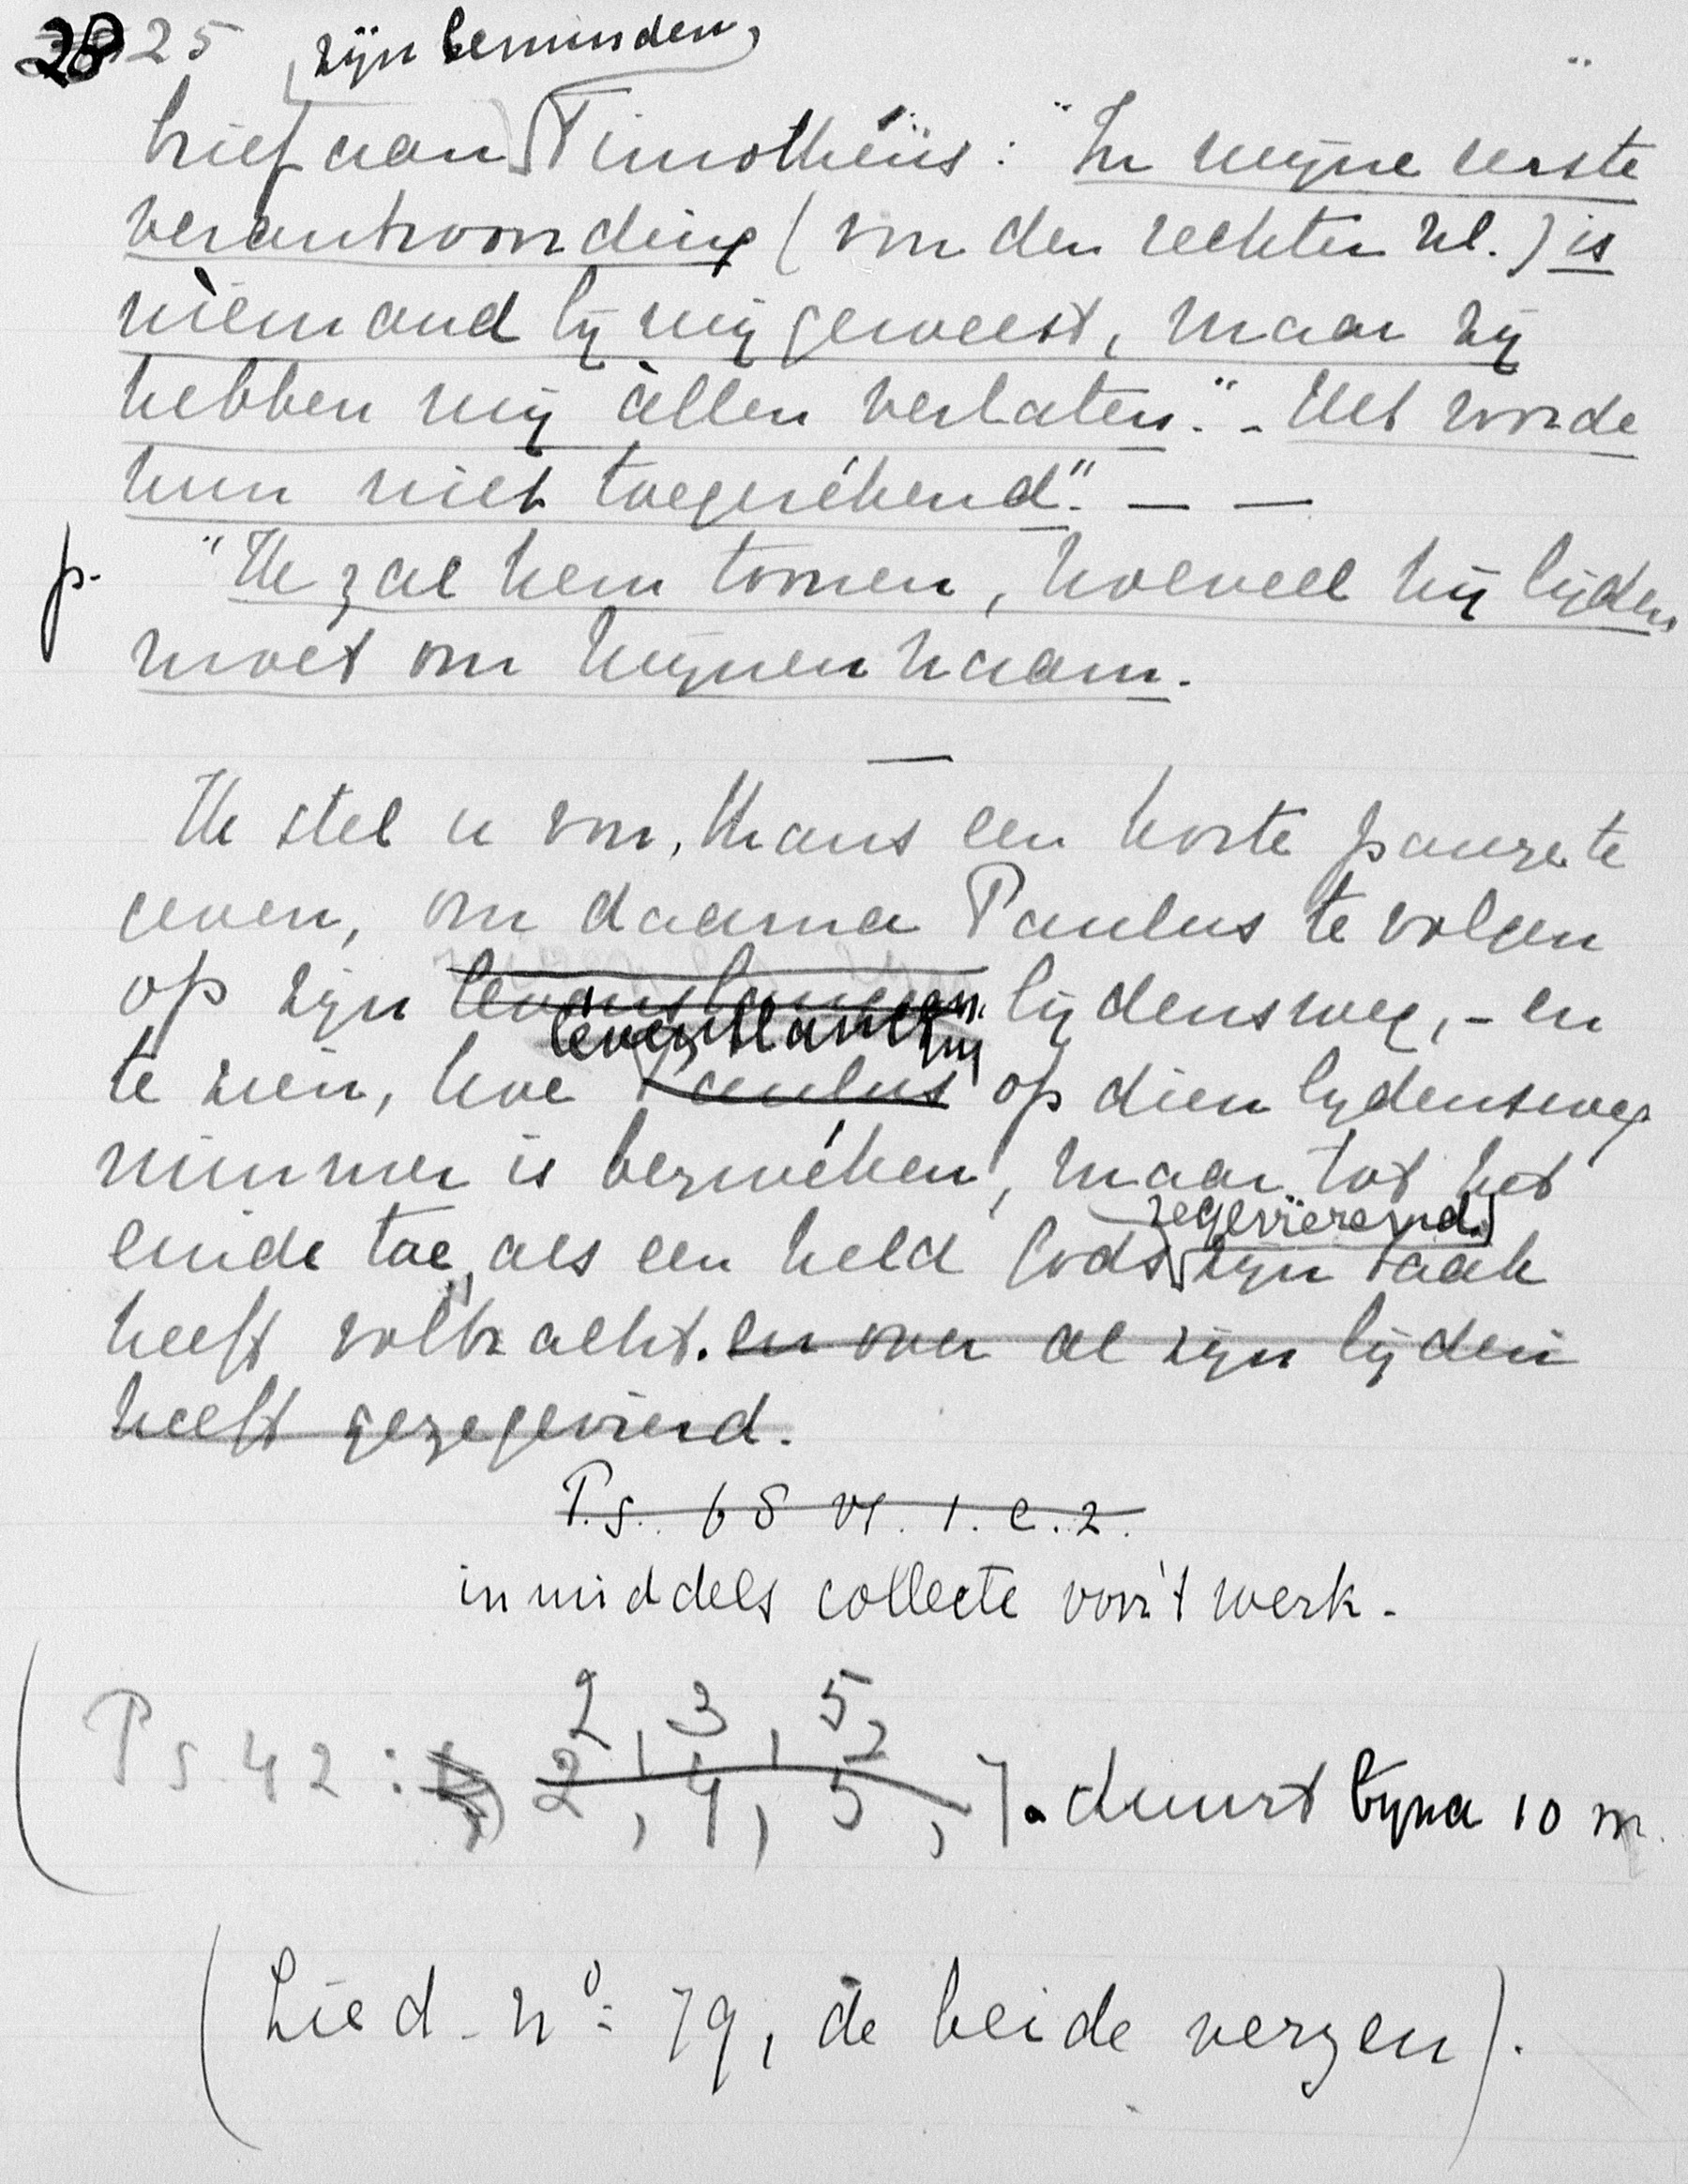 28 25 zijn beminden
brief aan Timothéüs: "In mijne eerste
verantwoording (voor den rechter nl.) is
niemand bij mij geweest, maar zij
hebben mij àllen verlaten." - Het worde
hun niet toegerékend". — —
p. "Ik zal hem toonen, hoeveel hij lijden
moet om mijnen naam.
—
Ik stel u voor, thans een korte pauze te
geven, om daarna Paulus te volgen
op zijn levenslangen lijdensweg, - en
levenslangen
te zien, hoe Paulus op dien lijdensweg
nimmer is bezwéken, maar tot het
zegevierend
einde toe, als een held Gods zijn taak
heeft volbracht. en over al zijn lijden
heeft gezegevierd.
Ps. 68 vs. 1. e. 2.
inmiddels collecte voor 't werk.
2, 3, 5,
(Ps 42: 2, 4, 5, 7. duurt bijna 10 m.
(Lied no: 79, de beide verzen).